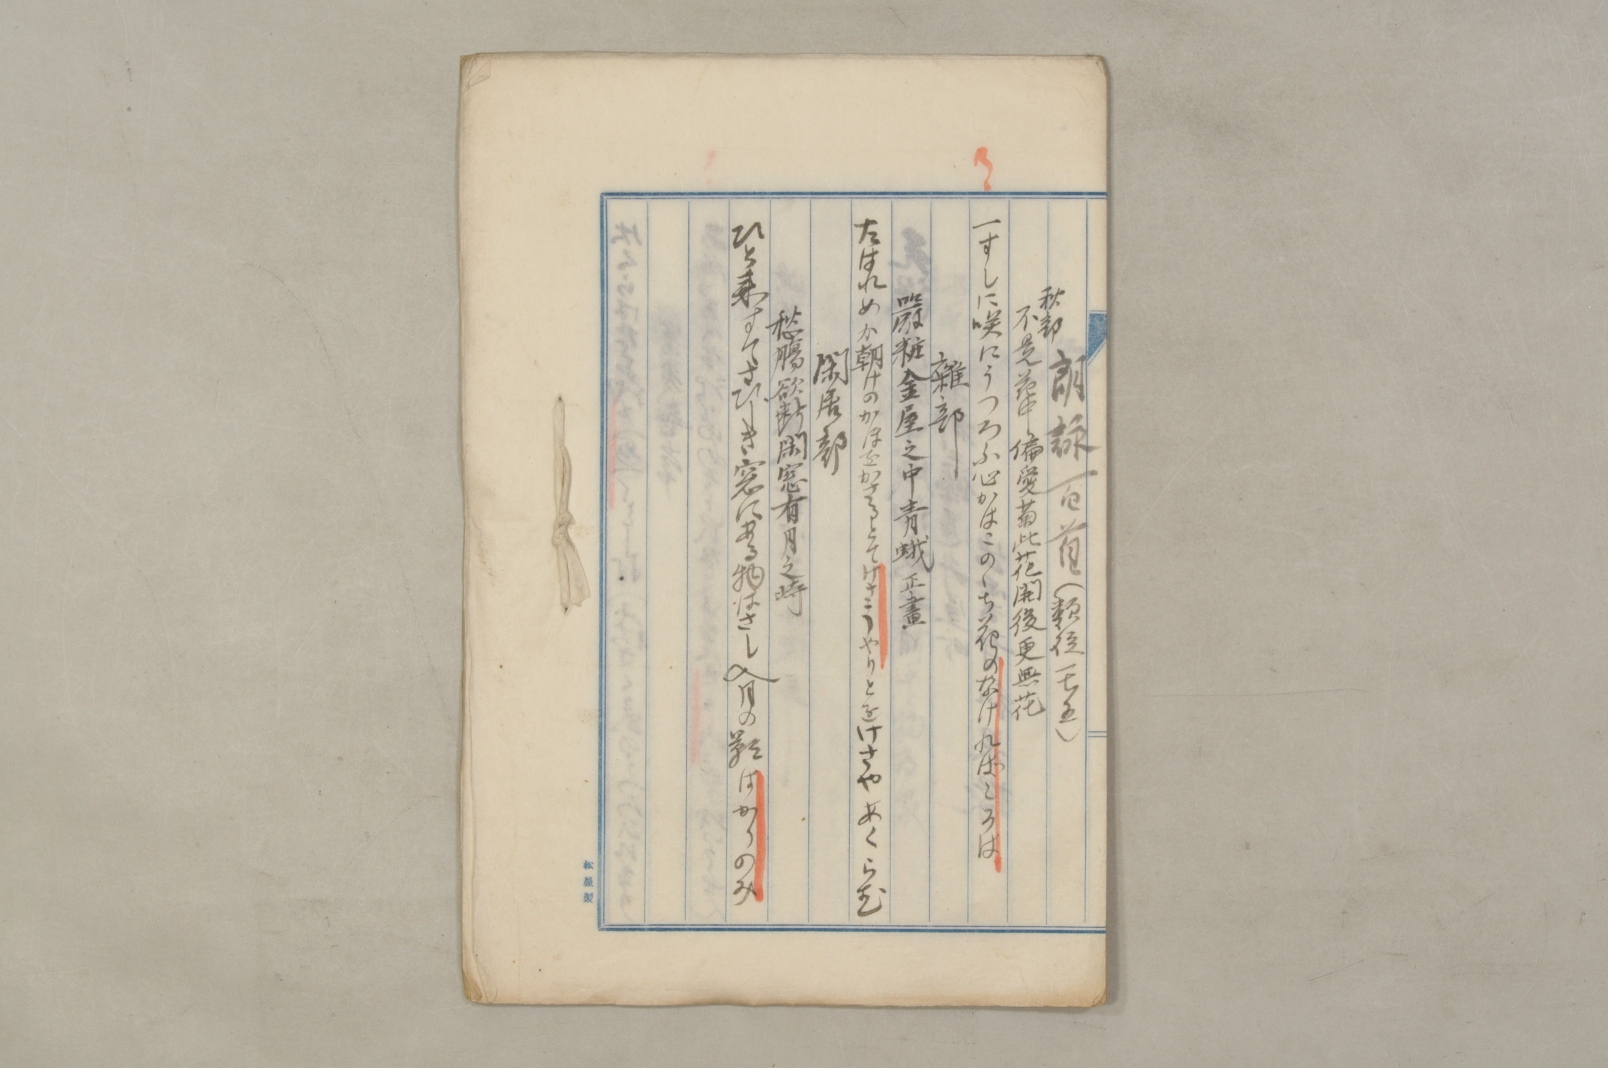 朗詠百首(類従一七五)
秋部
不是花中偏愛菊此花開後更無花
一すしに咲にうつろふ心かはこのゝち花のなけれはころは
雑部
嚴粧金屋之中青蛾正畫
たはれめか朝けのかほをかさるとてけさうやりとをけさやあくらむ
閑居部
愁腸欲断閑窓有月之時
ひと来すてさひしき窓にある物はさし入月の影はかりのみ
松屋製